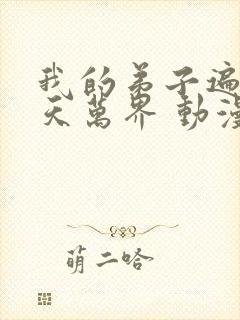 我的弟子遍
天萬界 動漫
萌二哈